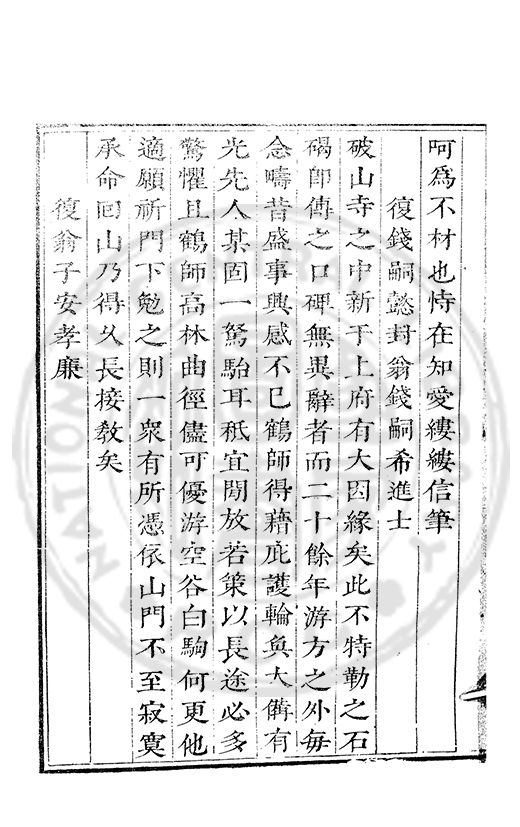 呵為不材也恃在知愛縷縷信筆
復錢嗣懿封翁錢嗣希進士
破山寺之中新于上府有大因緣矣此不特勒之石
碣即傳之口碑無異辭者而二十餘年游方之外每
念疇昔盛事興感不已鶴師得藉庇護輪奐大備有
光先人某固一駑駘耳秖宜閒放若策以長途必多
驚懼且鶴師高林曲徑儘可優游空谷白駒何更他
適願祈門下勉之則一衆有所憑依山門不至寂寞
承命回山乃得久長接教矣
復翁子安孝廉
NATIONAL CENTRAL LIBRARY